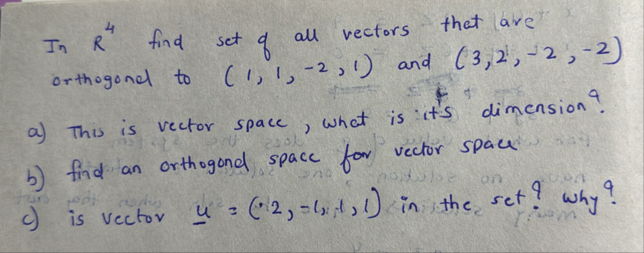 In R⁴ find set of all vectors that are
orthogonal to (1, 1, -2, 1) and (3, 2, -2, -2)
a) This is vector space, what is it's dimension?
b) find an orthogonal space for vector space
c) is vector u = (2, -1, 1, 1) in the set? why?